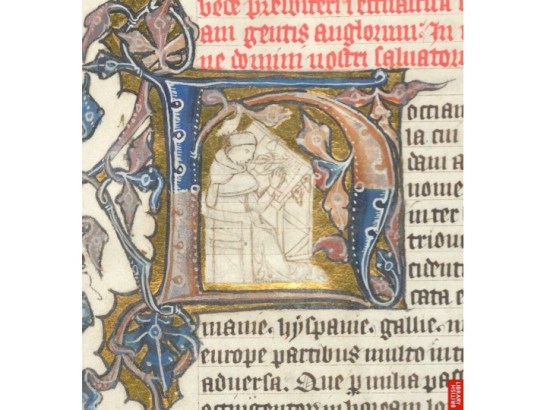 presbiteri i
am gentis anglorum: In
ne domini nostri salvator
occian
la cui
dam a
nome
inter
trion
cidenti
cata e
manie. hyspanie. gallie. m
europe partibus multo int
adversa. Que p milia pass
in boream lon
BRITISH
LIBRARY